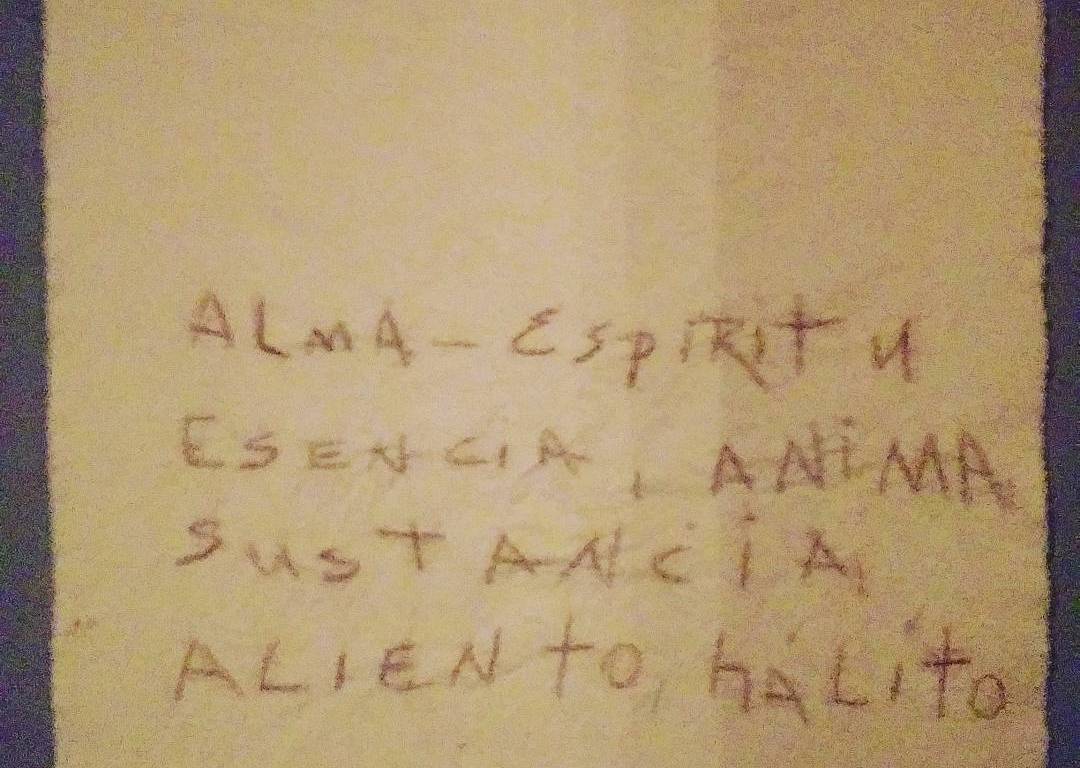 ALMA - ESpIRITu
ESENCiA, ANiMA
SusTANCiA,
ALIENtO, hÁLito